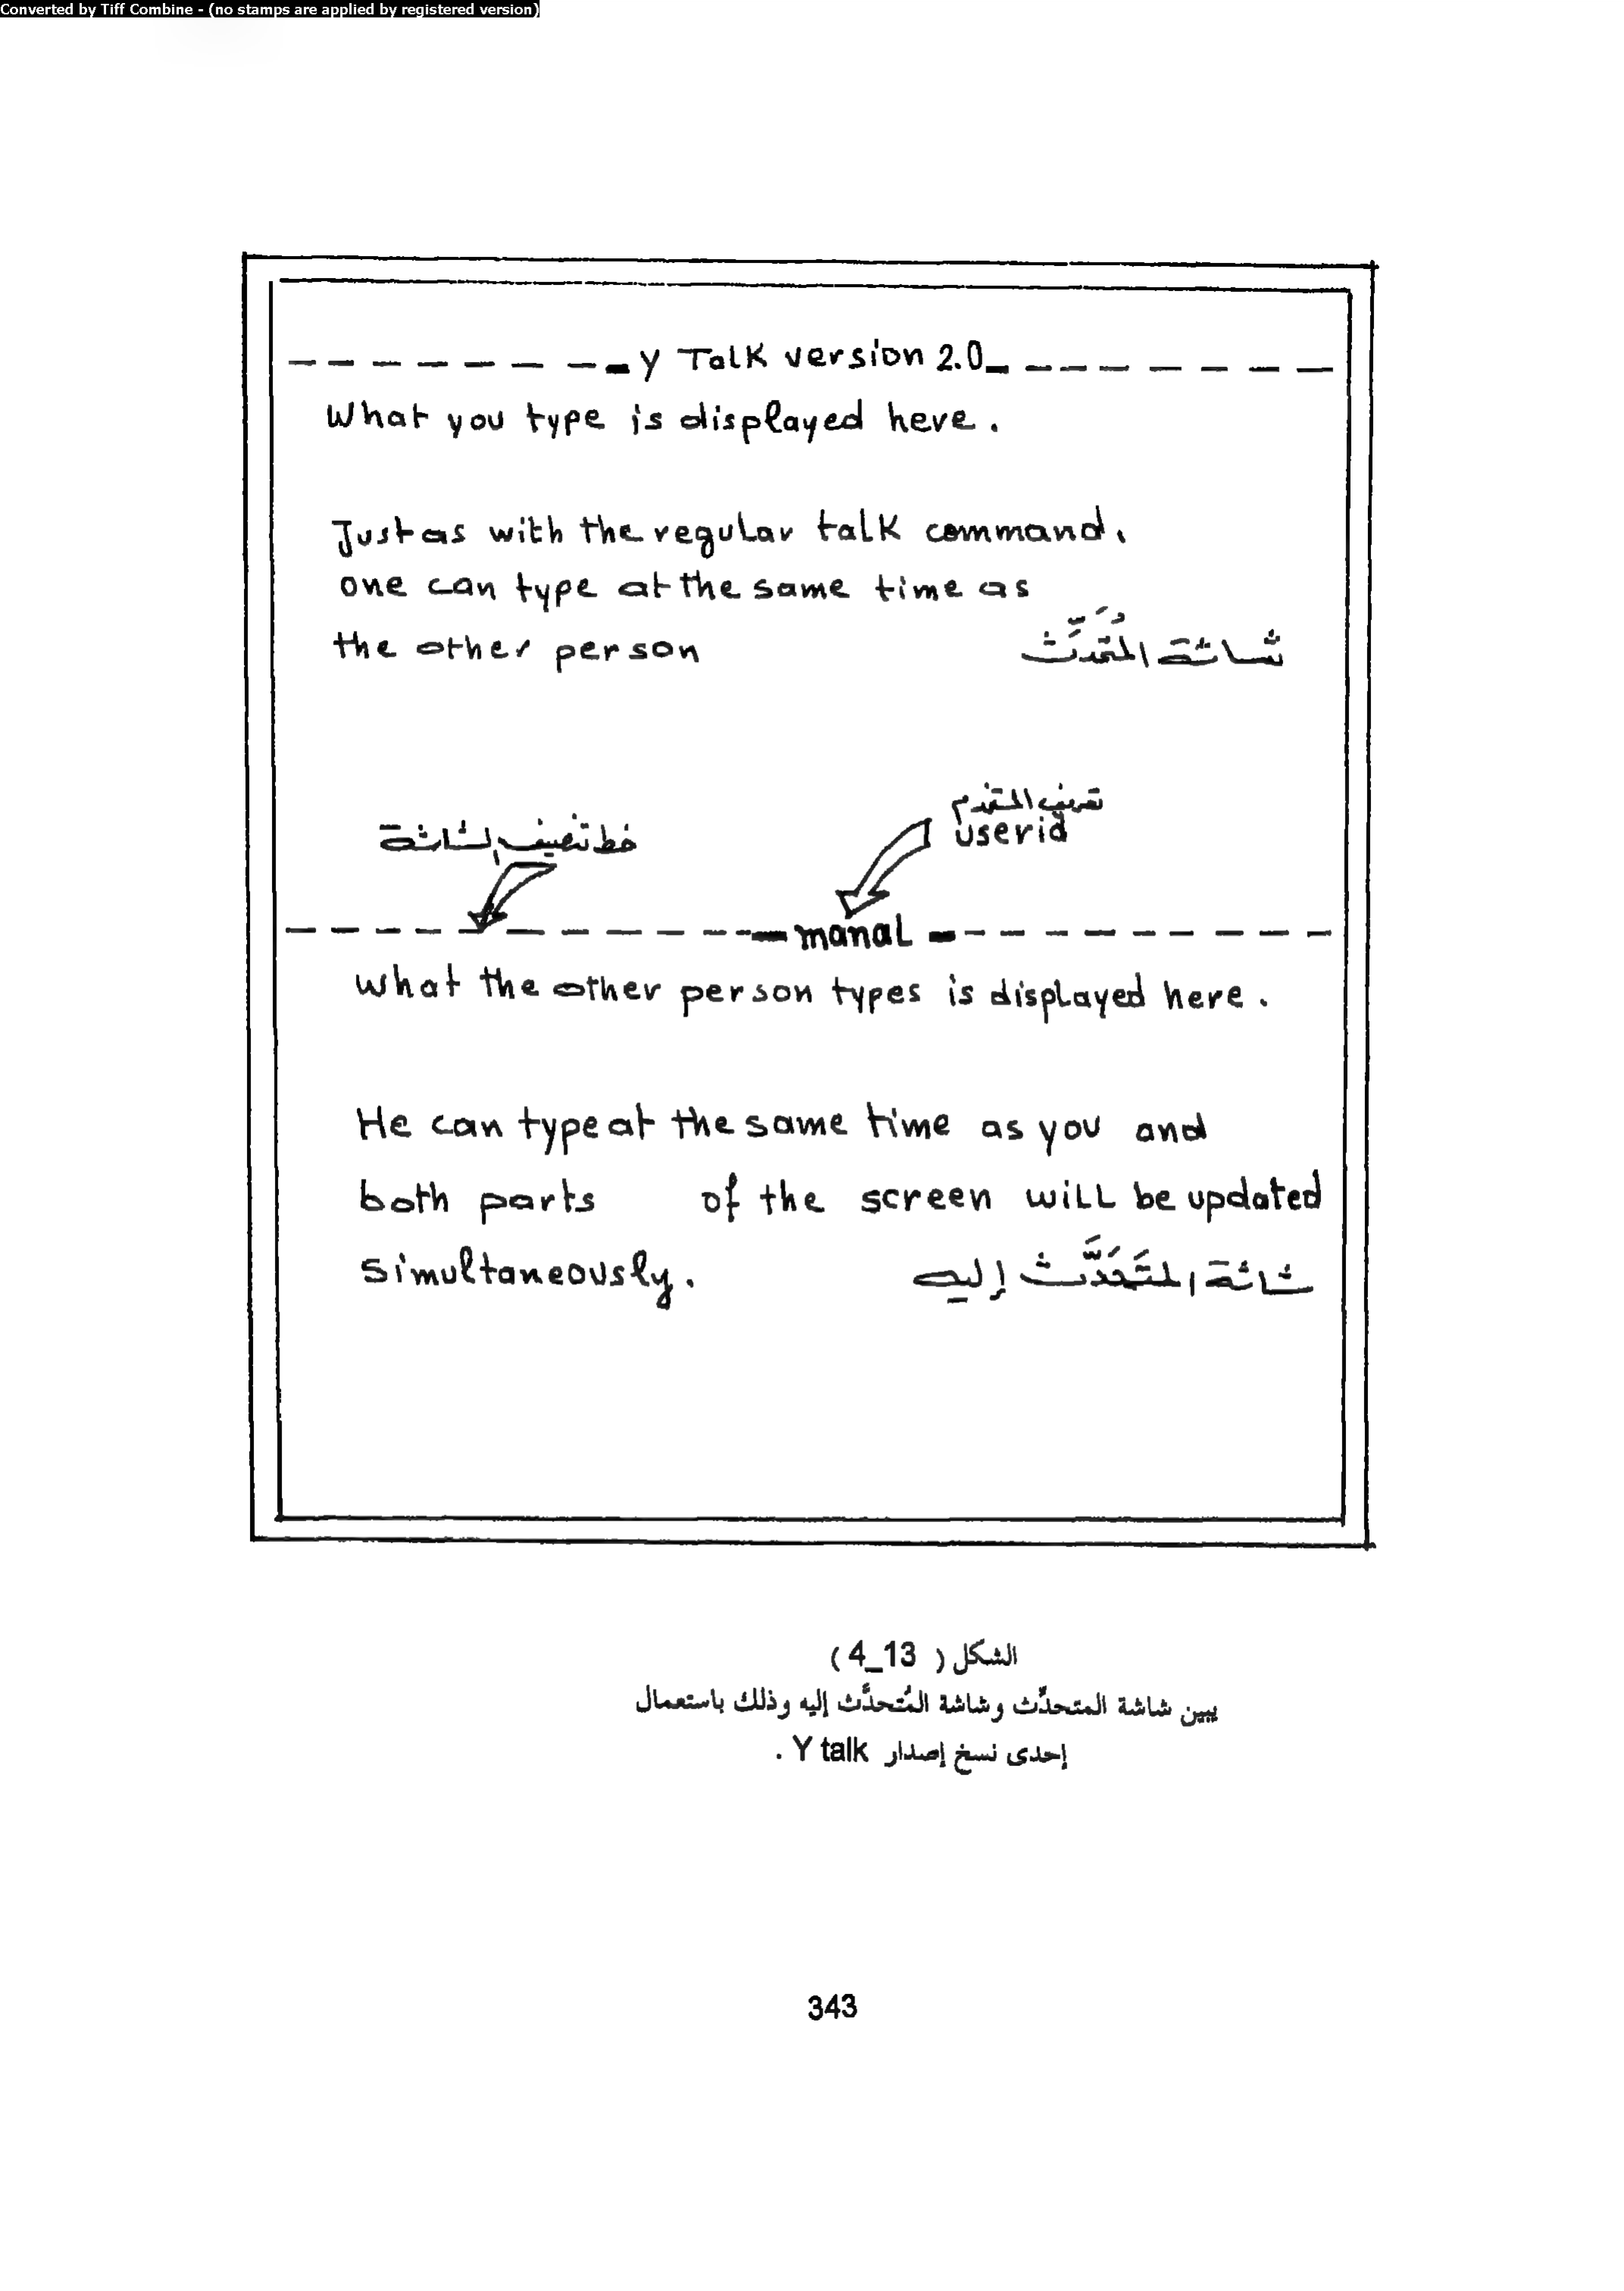 Converted by Tiff Combine - (no stamps are applied by registered version)
Y Talk version 2.0
What you type is displayed here.
Just as with the regular talk command.
one can type at the same time as
the other person
شاشة المُتحَدِّث
تعريف المستخدم
userid
خط تنصيف الشاشة
manal
what the other person types is displayed here.
He can type at the same time as you and
both parts of the screen will be updated
simultaneously.
شاشة المتَحَدَّث إليه
الشكل ( 13_4 )
يبين شاشة المتحدِّث وشاشة المُتحدَّث إليه وذلك باستعمال
إحدى نسخ إصدار Y talk .
343